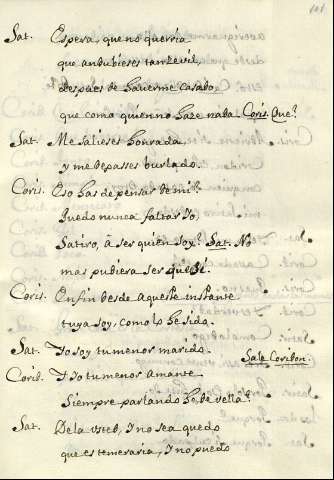 101
Sat. Espera, que no querria
que andubieses tan zevil,
despues de haverme casado
que como quien no haze nada. Coris. Que?
Sat. Me salieses honrada
y me depasses burlado.
Coris. Eso has de pensar de mi?
Puedo nunca faltar Yo
Satiro, à ser quien soy? Sat. No
mas pudiera ser que Si.
Coris. Enfin desde aqueste instante
tuya soy, como lo he sido.
Sat. Yo soy tu menor marido. Sale Coridon.
Corid. Y Yo tu menor amante.
Siempre parlando he de vella?
Sat. Dela usted, Y no sea quedo
que es temeraria, Y no puedo